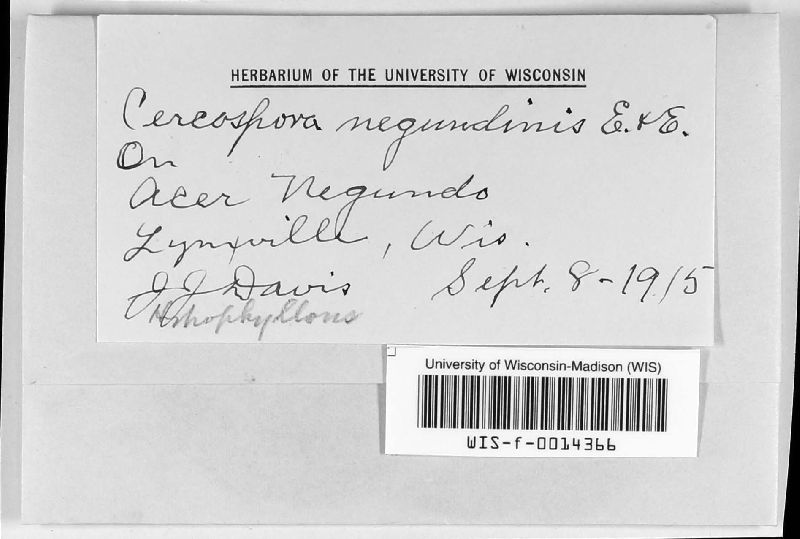 HERBARIUM OF THE UNIVERSITY OF WISCONSIN
Cercospora negundinis E. & E.
On
Acer Negundo
Lynxville, Wis.
J J Davis Sept. 8-1915
University of Wisconsin-Madison (WIS)
WIS-f-0014366